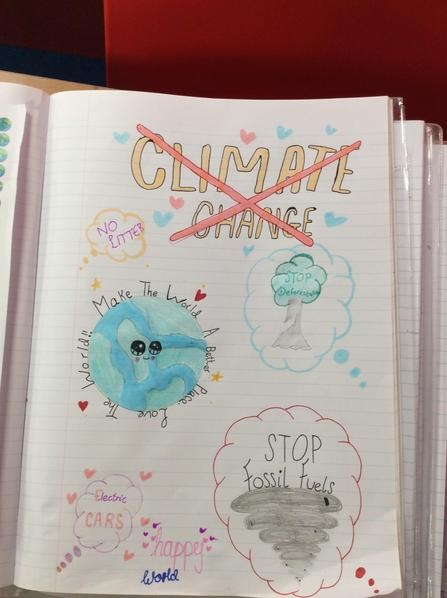 CLIMATE
CHANGE
NO
LITTER
STOP
Deforestation
Make The World A Better Place Love The World!!
STOP
Fossil Fuels
Electric
CARS
happy
World